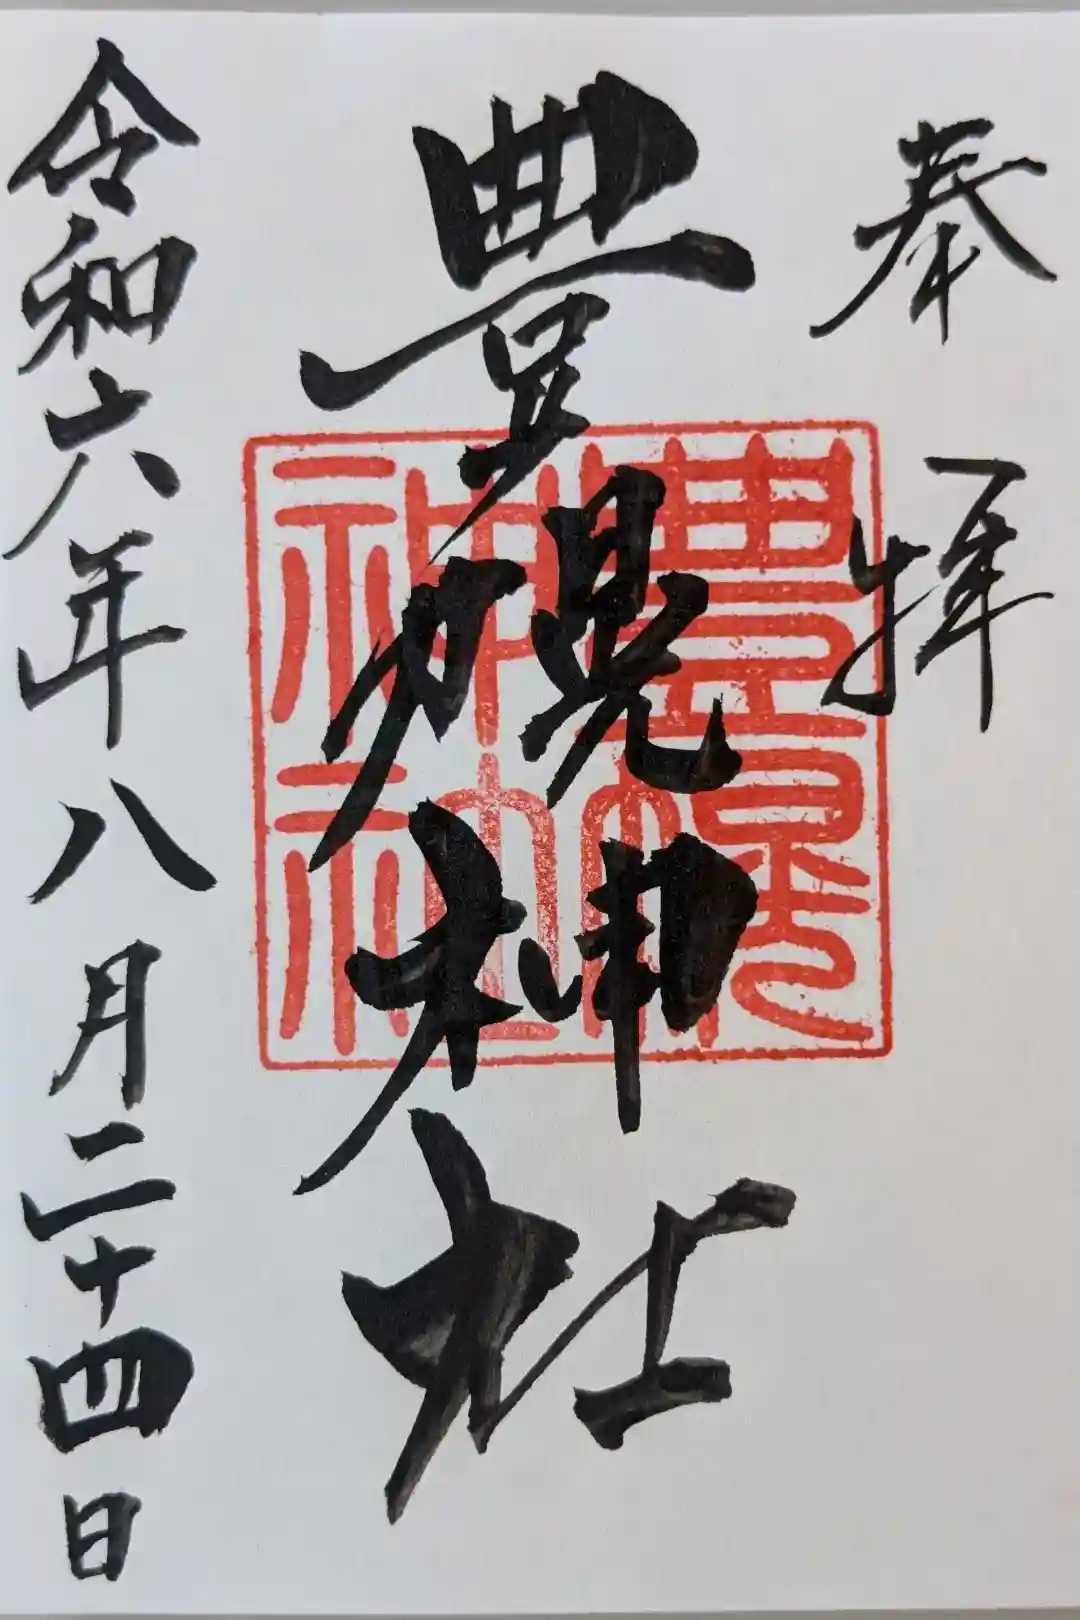 奉拝
豊幌神社
豊幌
神社
令和六年八月二十四日